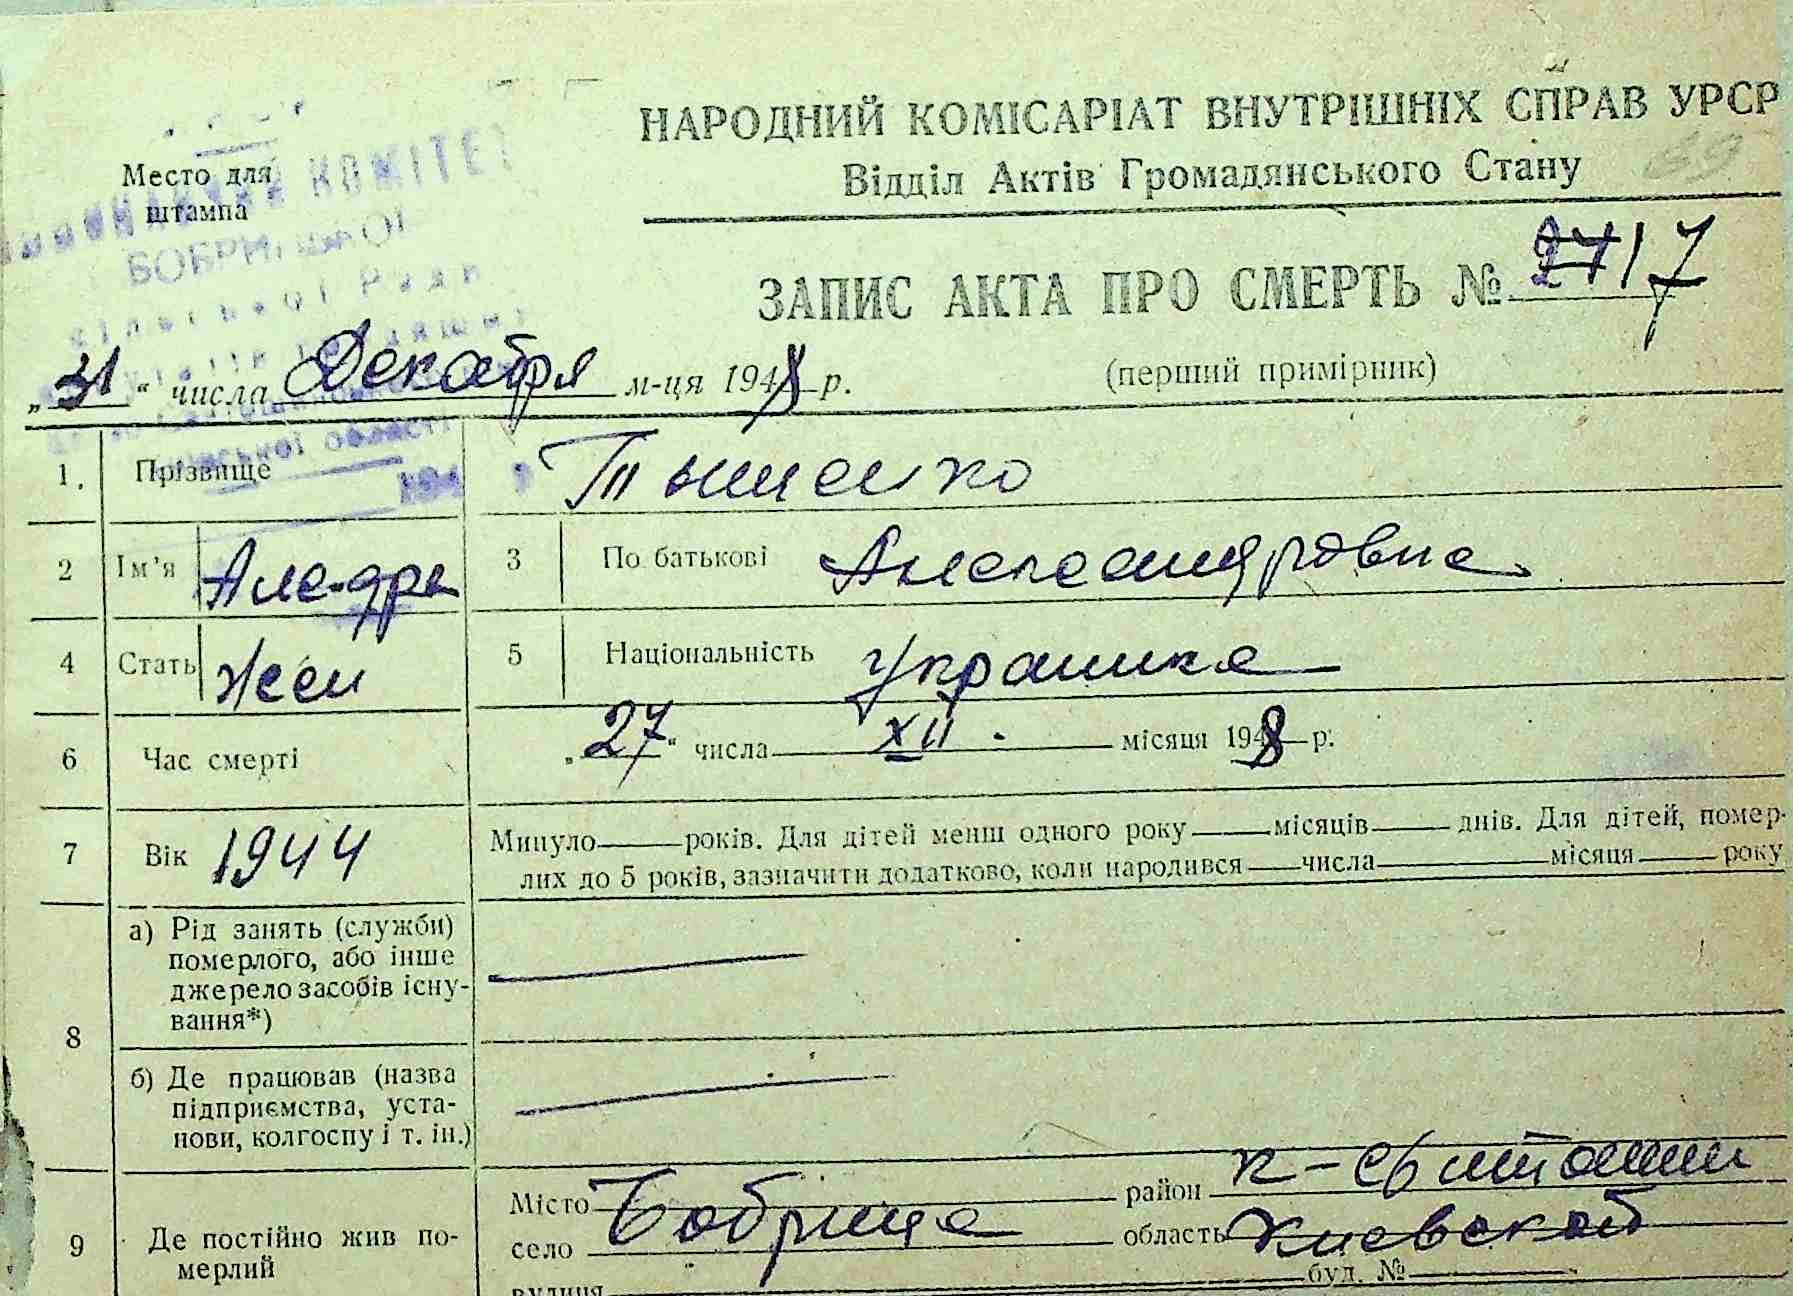 НАРОДНИЙ КОМІСАРІАТ ВНУТРІШНІХ СПРАВ УРСР
Відділ Актів Громадянського Стану
89
Место для
штампа
КОМІТЕТ
ЗАПИС АКТА ПРО СМЕРТЬ № 17
(перший примірник)
„31“ числа Декабря м-ця 1948 р.
області
1. Прізвище
2 Ім'я
3 По батькові
4 Стать Жен
5 Національність Украинка
6 Час смерті „27“ числа XII. місяця 1948 р.
7 Вік 1944 Минуло року. Для дітей менш одного року місяців днів. Для дітей, помер-
лих до 5 років, зазначити додатково, коли народився числа місяця року
8 а) Рід занять (служби)
померлого, або інше
джерело засобів існу-
вання*)
б) Де працював (назва
підприємства, уста-
нови, колгоспу і т. ін.)
9 Де постійно жив по-
мерлий
Місто район
село Бобрица область Киевской
вулиця буд. №